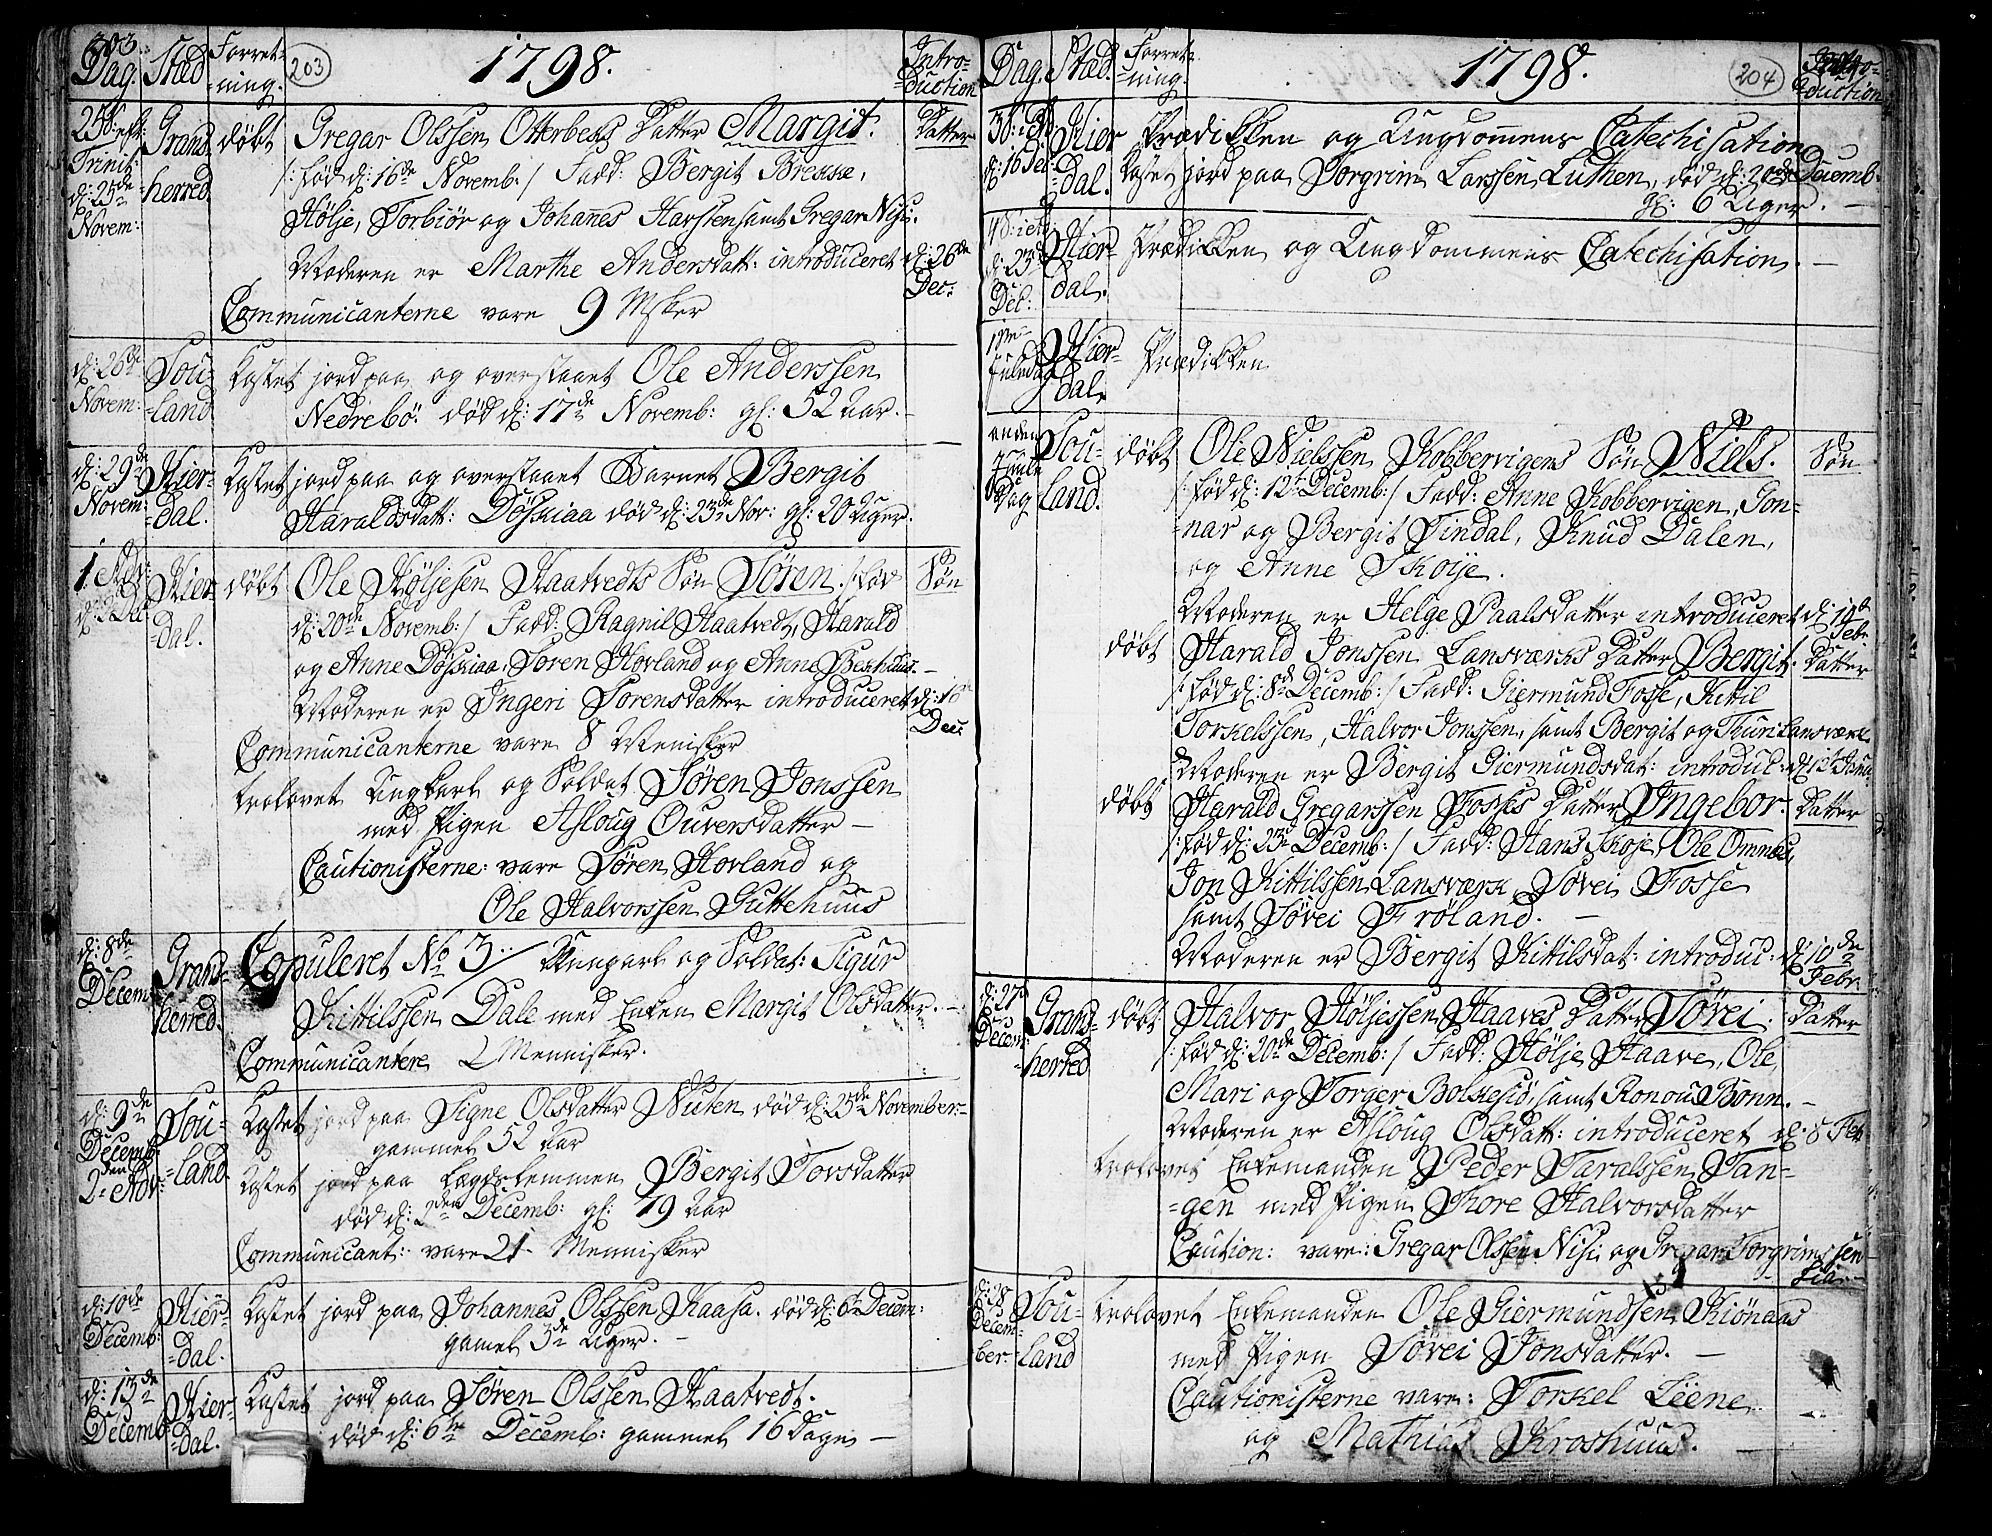 203.
Dag. Sted Forret-
-ning. 203 1798. Intro-
-duction
25d: eft: Trinit: d: 25de Novem: Grans herred. døbt Gregar Olssen Otterbeks Datter Margit. Datter
/: fød d: 16de Novemb: / Fadd: Bergit
Hølje, Torbiør og Johanes samt Gregar Nisi.
Moderen er Marthe Andersdatt: introduceret d: 26de
Dec:
Communicanterne vare 9 Msker
d: 26de Novem: Sou-
-land Kastet jord paa og overstaaet Ole Anderssen
Nedrebö: död d: 17de Novemb: gl: 52 Aar. -
d: 29de Novem: Hier-
-dal. Kastet jord paa og overstaaet Barnet Bergit
Haraldsdatt: död d: 23de Nov: gl: 20 Uger.
1 Adv: d: 2 De Hier
-dal. døbt Ole Høljesen Haatvedts Søn Sören. /: fød Søn
d: 20de Novemb: / Fadd: Ragnil Haatvedt, Harald
og Anne Sören Hovland og Anne
Moderen er Ingeri Sorensdatter introduceret d:
Dec:
Communicanterne vare 8 Menisker
trolovet Ungkarl og Soldat Sören Jonssen
med Pigen Asloug Ouversdatter -
Cautionisterne: vare Sören Hovland og
Ole Halvorssen Guttehuus
d: 8de Decem: Grans-
herred. Copuleret No 3. / Ungkarl og Soldat: Sigur
Kittilssen Dale med Enken Margit Olsdatter. -
Communicantere 2 Mennisker.
d: 9de Decemb: 2den Adv: Sou-
-land. Kastet jord paa Signe Olsdatter Nuten död d: 25de November:
gammel 52 Aar
Kastet jord paa Lægdslemmen Bergit Tovsdatter
död d: 2den Decemb: gl: 79 Aar
Communicant: vare 21 Mennisker
d: 10de Decemb: Hier-
-dal. Kastet jord paa Johannes Olssen Kaasa. död d: 6te Decem:
gamel 3de Uger. -
d: 13de Decemb Hier-
-dal. Kastet jord paa Sören Olssen Haatvedt.
död d: 6te Decemb: gammel 16 Dage -
Dag. Sted. Forret-
-ning. 1798. 204 Intro-
duction
3d: i Adv d: 16 De Hier
-dal. Prædikken og Ungdommens Catechisation
Kastet jord paa Torgrim Larssen Luthen, död d: 20de Decemb.
gl: 6 Uger. -
4d: i Adv d: 23de Dec: Hier-
dal. Prædikken og Ungdommens Catechisation. -
1ste Juledag Hier-
dal. Prædikken
anden Juule Dag Sou-
land. døbt Ole Nielssen Kobbervigens Søn Niels. Søn
/: fød d: 12te Decemb: / Fadd: Anne Kobbervigen, Gon-
-nar og Bergit Tindal, Knud Dalen,
og Anne Skoije.
Moderen er Helge Paalsdatter introduceret d: 14de
Febr.
døbt Harald Jonssen Lansværks Datter Bergit. Datter
/: fød d: 8de Decemb: / Fadd: Giermund Fosse, Kitil
Torkelssen, Halvor Jonssen, samt Bergit og Thuri Lansværk
Moderen er Bergit Giermundsdat: introduc: d:
døbt Harald Gregarssen Foskes Datter Ingebor. Datter
/: fød d: 23de Decemb: / Fadd: Hans Skoje, Ole Omnes,
Jon Kittilssen Lansværk, Sövei Fosse
samt Sövei Fröland. -
Moderen er Bergit Kittilsdat: introduc: d: 10de
Febr.
d: 27 Decem: Grans-
-herred døbt Halvor Höljessen Haaves Datter Sövei. Datter
/: fød d: 20de Decemb: / Fadd: Hölje Haave, Ole,
Mari og Torger Bolkesiö, samt Ronou Bonn. -
Moderen er Asloug Olsdatt: introduceret d: 8 Feb
trolovet Enkemanden Peder Taralssen Tan-
-gen med Pigen Thore Halvorsdatter
Caution: vare: Gregar Olssen Nisi og Gregar Torgrimssen
Lia
d: 28 Decem-
ber. Sou-
-land trolovet Enkemanden Ole Giermundsen Kiönaas
med Pigen Sövei Jonsdatter. -
Cautionisterne vare: Torkel Leene
og Mathias Kroshuus. -